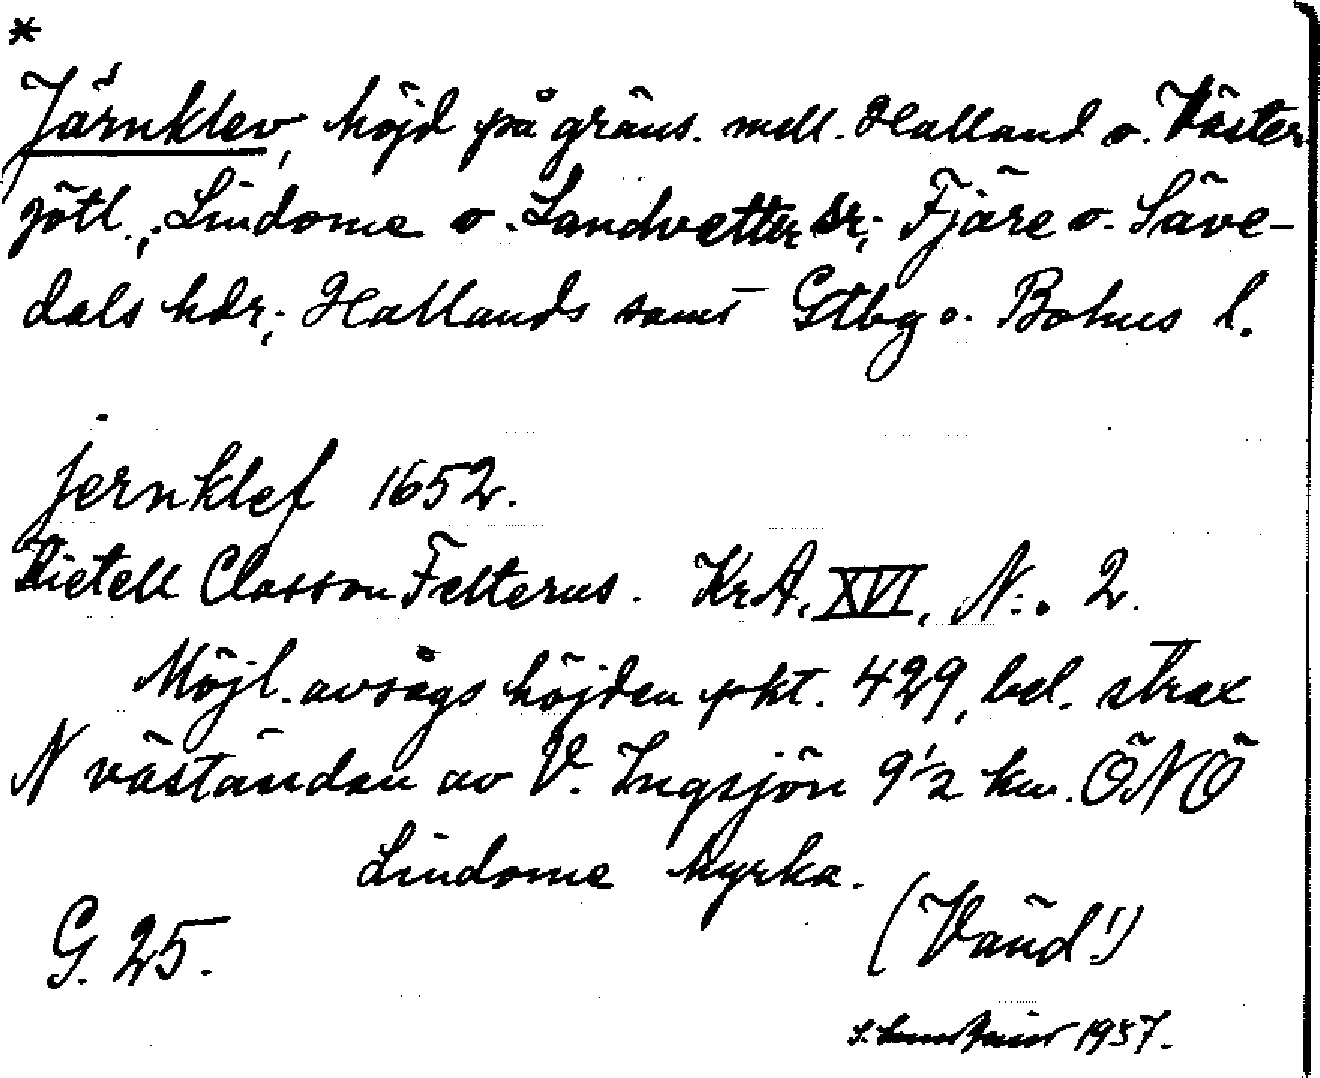 *
Järnklev, höjd på gräns. mell. Halland o. Väster
götl., Lindome o. Landvetter sr; Fjäre o. Säve-
dals hdr; Hallands samt Gtbg o. Bohus l.
jernklef 1652.
Kietell Classon Felterus. KrA. XVI, N:o 2.
Möjl. avsågs höjden pkt. 429, bel. strax
N väständan av V. Ingsjön 9 1/2 km. ÖNÖ
Lindome kyrka.
G. 25.
(Vänd!)
1957.